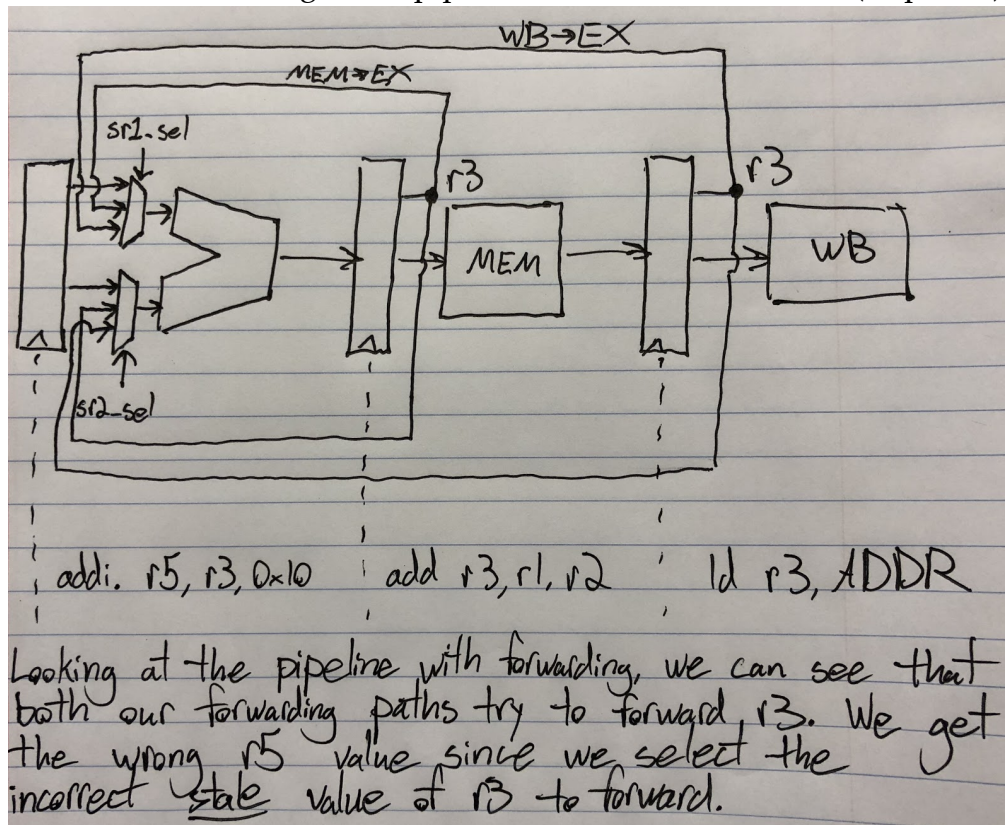 WB→EX
MEM→EX
sr1_sel
r3
r3
MEM
WB
sr2_sel
addi. r5, r3, 0x10 add r3, r1, r2 ld r3, ADDR
Looking at the pipeline with forwarding, we can see that
both our forwarding paths try to forward r3. We get
the wrong r5 value since we select the
incorrect stale value of r3 to forward.